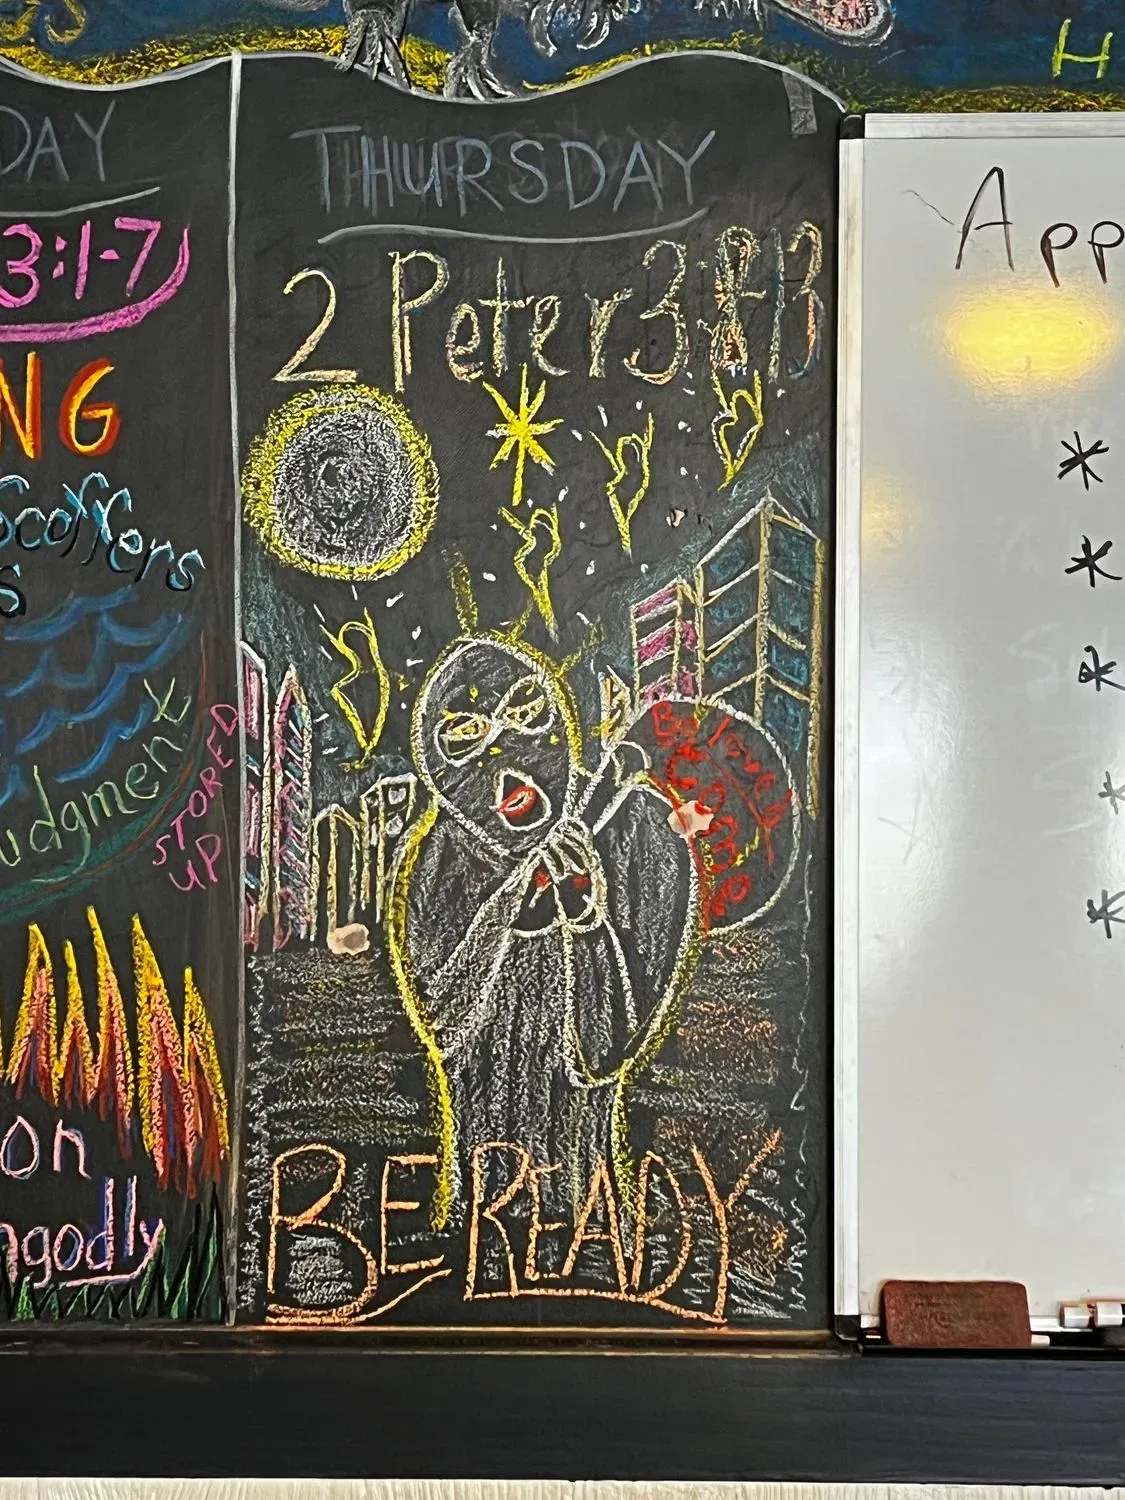 DAY
3:1-7
NG
Scoffers
s
udgment
STORED
UP
on
ngodly
THURSDAY
2 Peter 3:8-13
Beloved
COME
BE READY
H
App
*
*
*
*
*